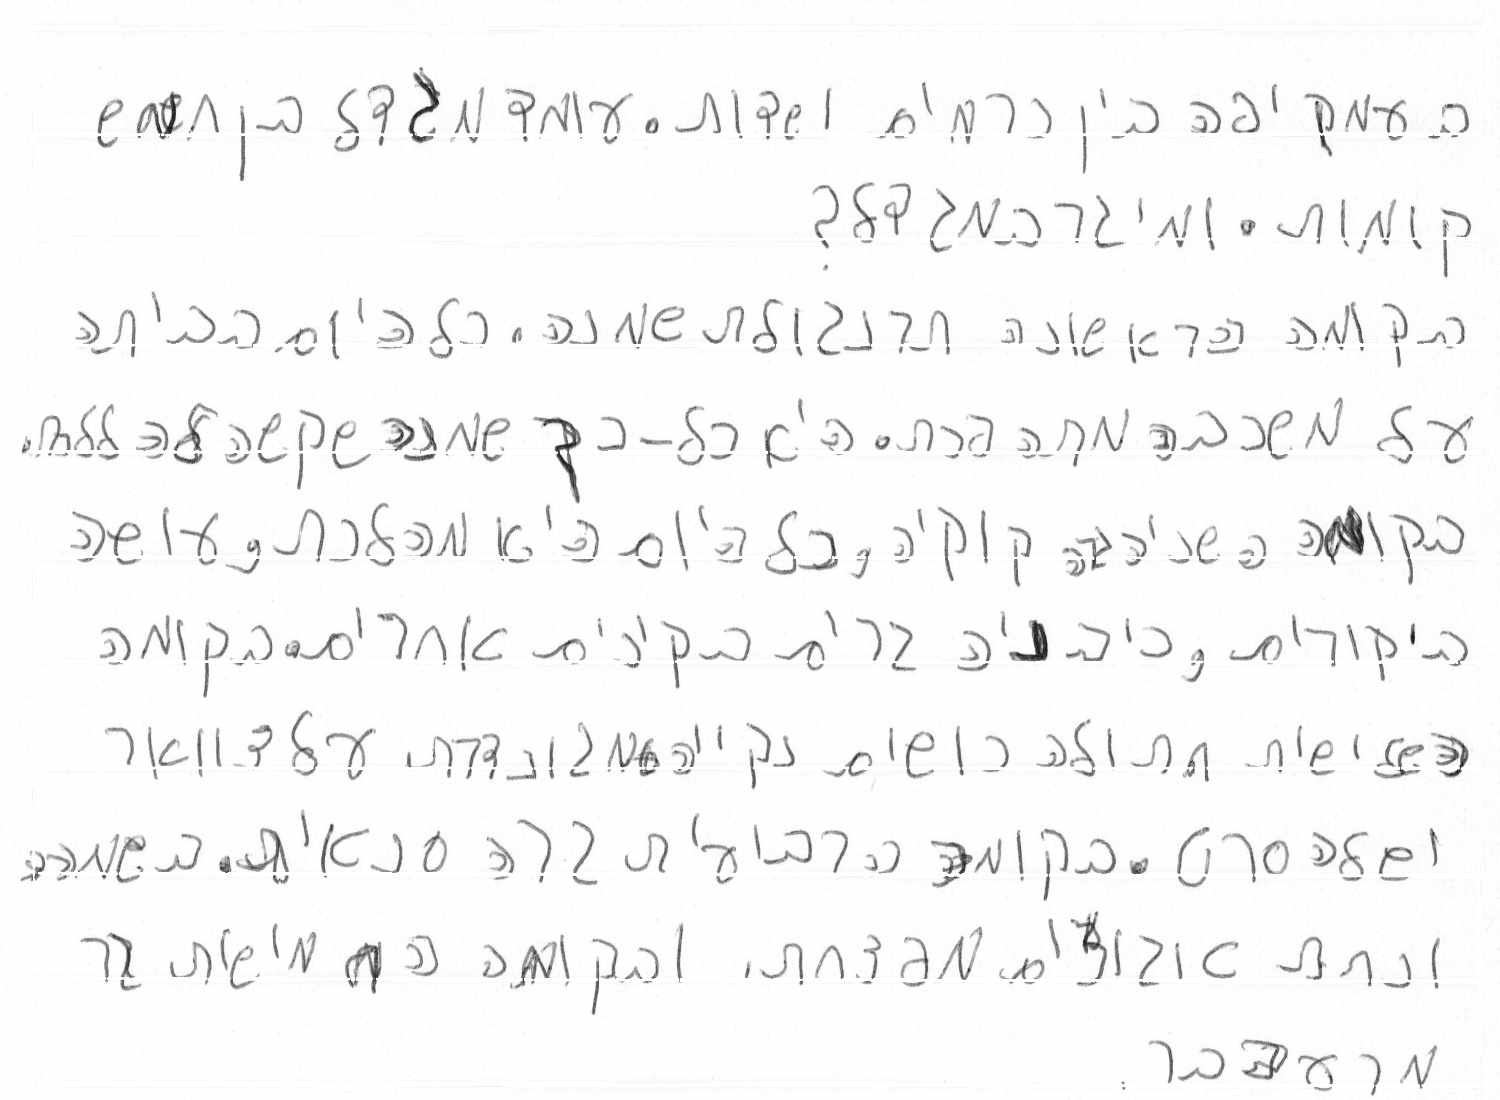 בעמק יפה בין כרמים ושדות. עומד מגדל בן חמש
קומות. ומי גר במגדל?
בקומה הראשונה תרנגולת שמנה. כל היום בביתה
על משכבה מתהפכת. היא כל-כך שמנה שקשה לה ללכת.
בקומה השנייה קוקיה, כל היום היא מהלכת, עושה
ביקורים, כי בניה גרים בקינים אחרים. בקומה
השלישית חתולה כושים נקייה מגונדרת על צוואר
ושלה סרט. בקומה הרבועית גרה סנאית. בשמחה
ונחת אגוזים מפצחת. ובקומה החמישית גר
מר עכבר.